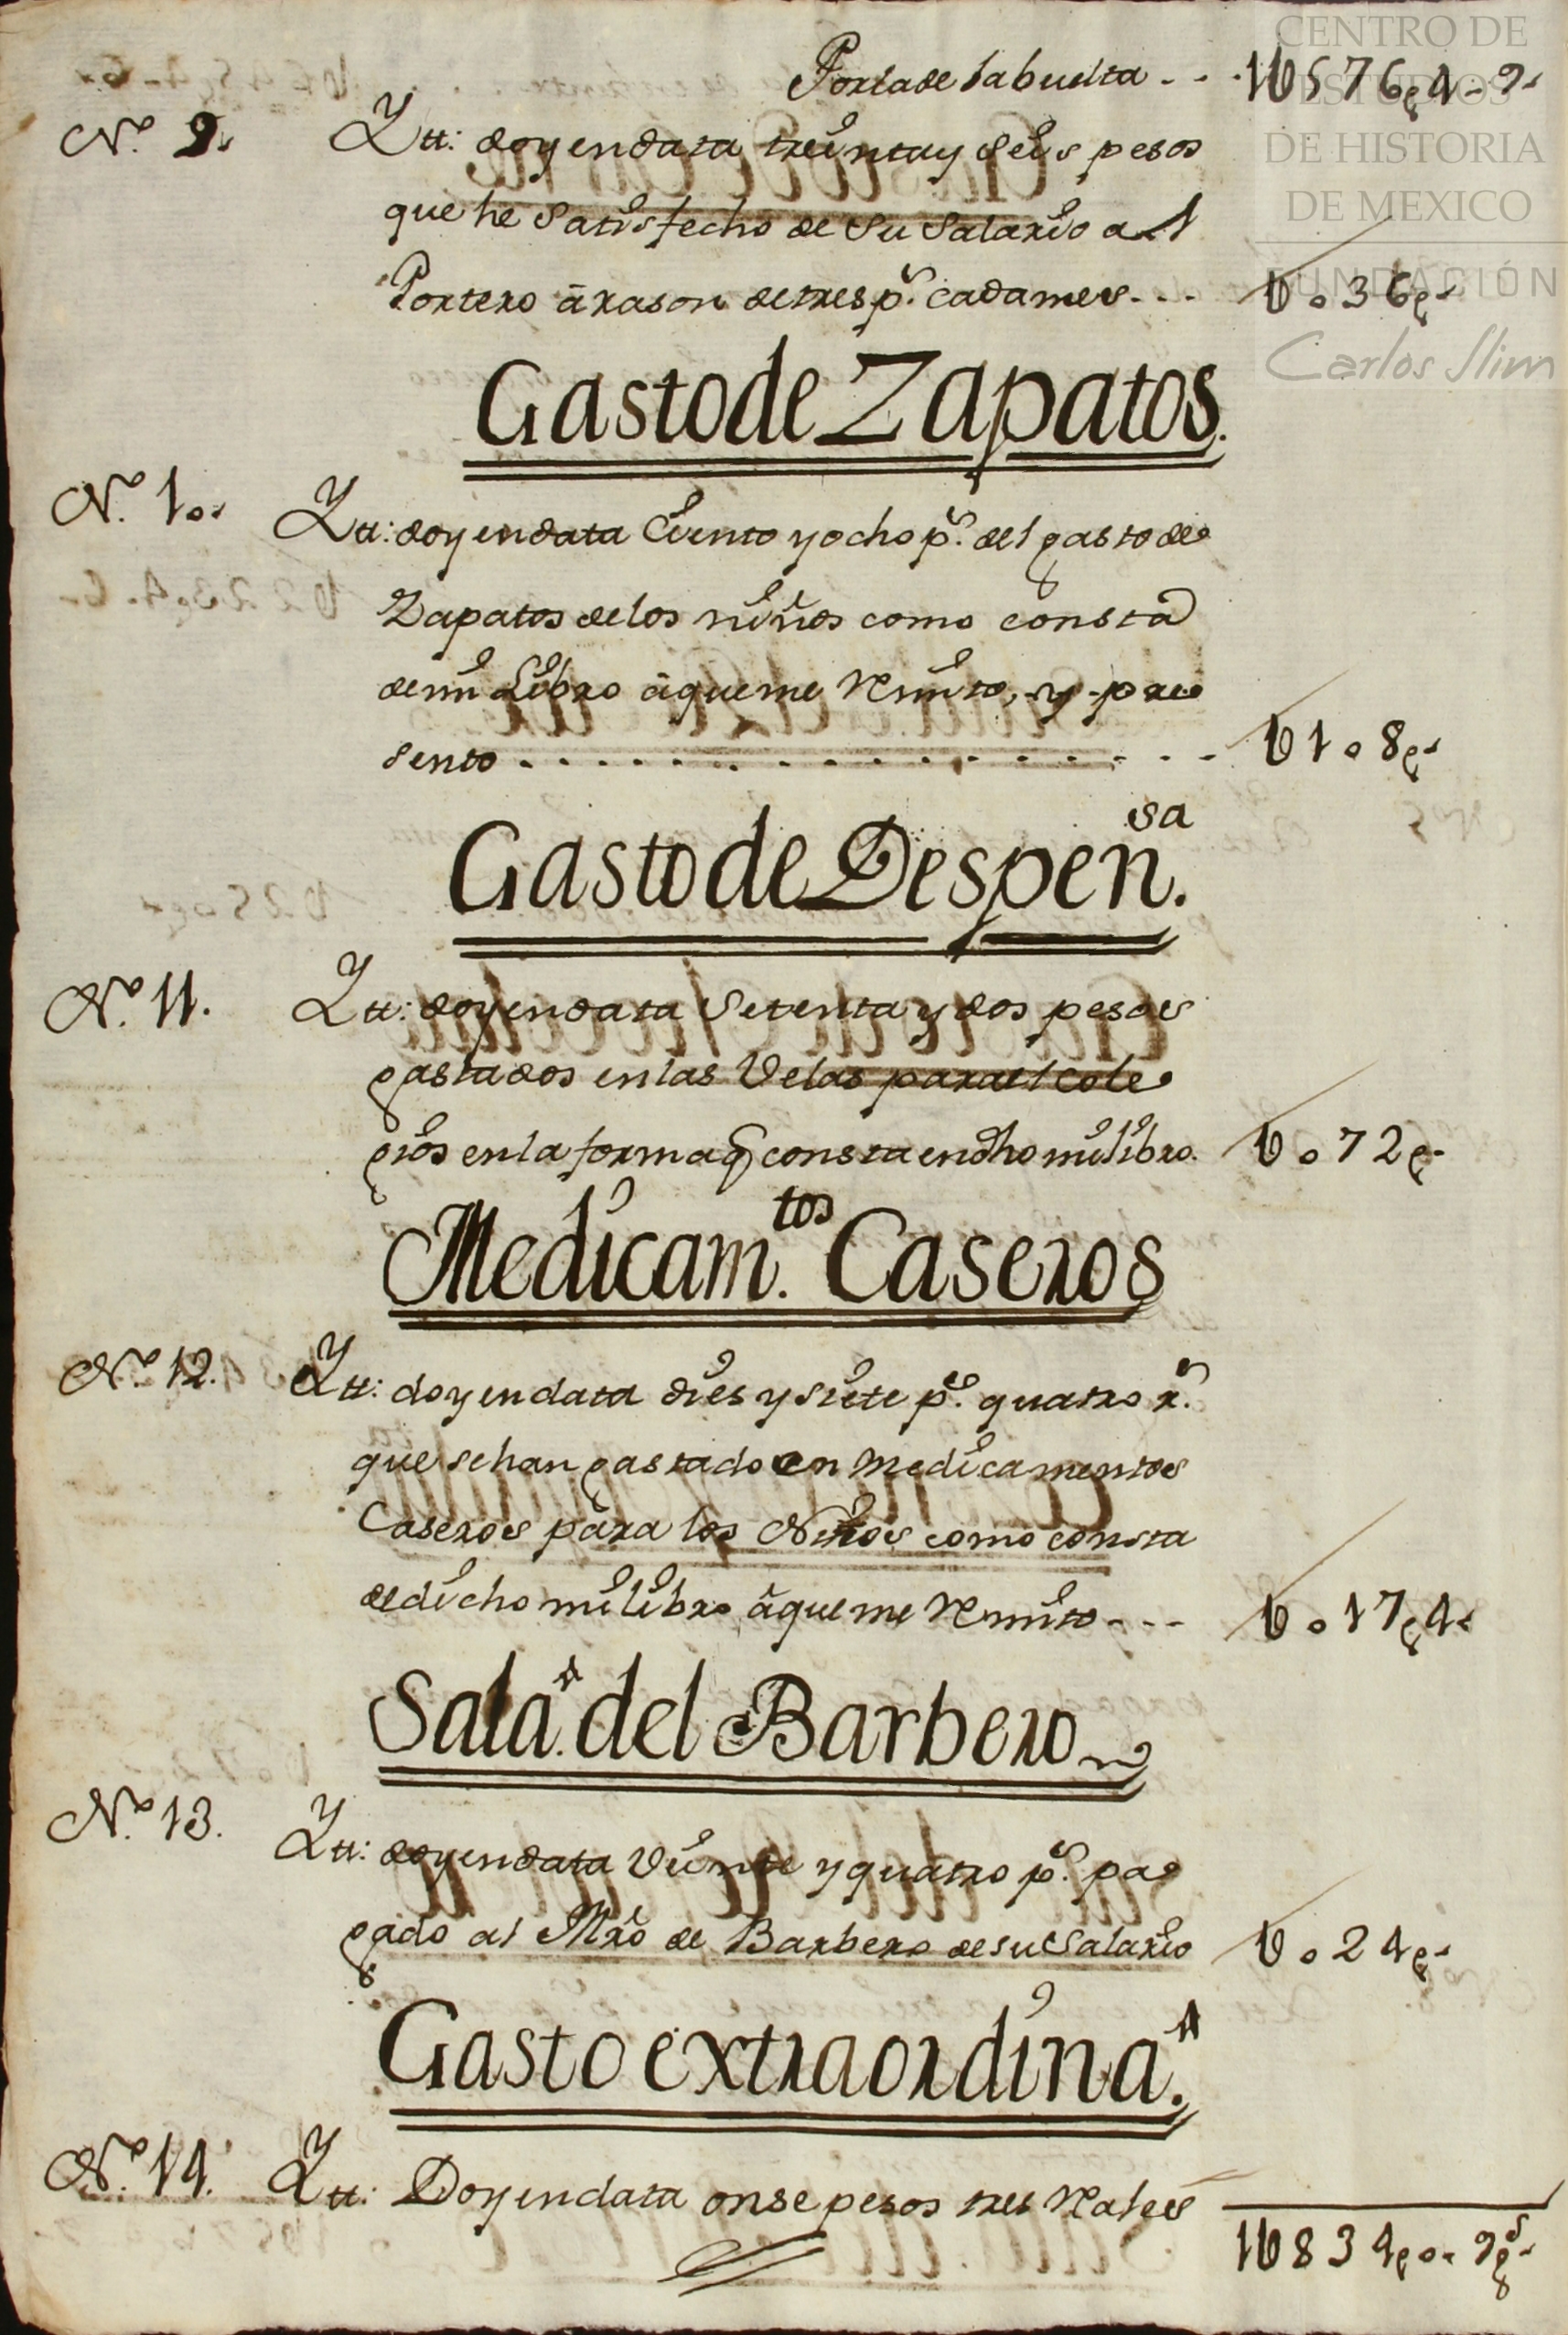 Por la de la buelta - - - 1U576p4-9-
N.º 9. Ytt: doy en data treinta y seis pesos
que he Satisfecho de su Salario al
Portero â rason de tres p.s cada mes - - - U036p-
Gasto de Zapatos.
N.º 10. Ytt: doy en data Ciento y ocho p.s del gasto de
Zapatos de los niños como consta
de mi Libro â que me remito, y pre
sento . . . . . . . . . . . . . . . U108p-
Gasto de Despen.sa
N.º 11. Ytt: doy en data Setenta y dos pesos
gastados en las Velas para el Cole
gio en la forma q consta en dho mi libro. U072p-
Medicam.tos Caseros
N.º 12. Ytt: doy en data dies y siete p.s quatro r.s
que se han gastado en Medicamentos
Caseros para los Niños como consta
de dicho mi libro â que me remito - - - U017p4-
Sala.o del Barbero
N.º 13. Ytt: doy en data Veinte y quatro p.s pa
gado al Mro de Barbero de su Salario U024p-
Gasto extraordina.o
N.º 14. Ytt: Doy en data onse pesos tres reales
1U834p0-9g.s
CENTRO DE
ESTUDIOS
DE HISTORIA
DE MEXICO
FUNDACIÓN
Carlos Slim